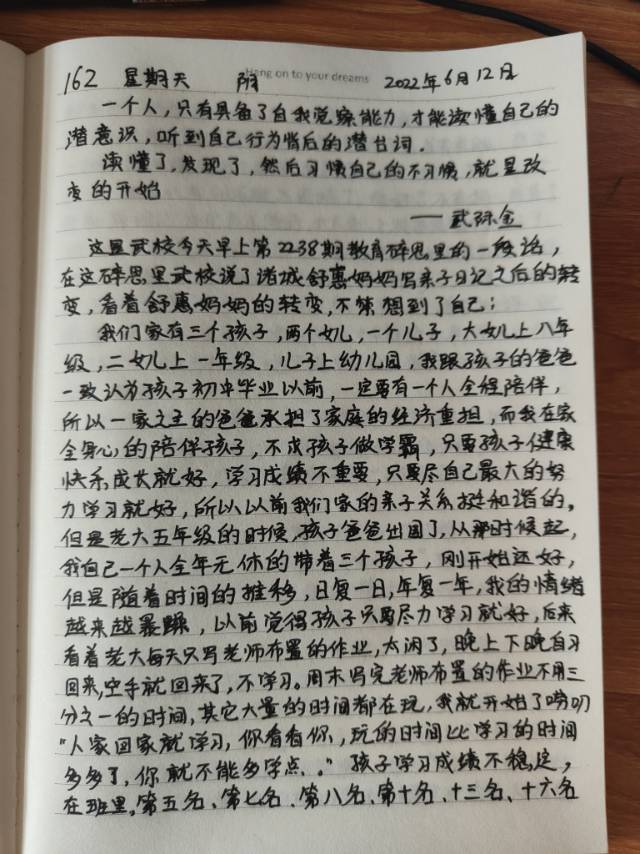 162 星期天 阴 Hang on to your dreams 2022年6月12日
一个人,只有具备了自我觉察能力,才能读懂自己的
潜意识,听到自己行为背后的潜台词.
读懂了,发现了,然后习惯自己的不习惯,就是改
变的开始
——武际金
这是武校今天早上第2238期教育碎思里的一段话,
在这碎思里武校说了诸城舒惠妈妈写亲子日记之后的转
变,看着舒惠妈妈的转变,不禁想到了自己:
我们家有三个孩子,两个女儿,一个儿子,大女儿上八年
级,二女儿上一年级,儿子上幼儿园,我跟孩子的爸爸
一致认为孩子初中毕业以前,一定要有一个人全程陪伴,
所以一家之主的爸爸承担了家庭的经济重担,而我在家
全身心的陪伴孩子,不求孩子做学霸,只要孩子健康
快乐成长就好,学习成绩不重要,只要尽自己最大的努
力学习就好,所以以前我们家的亲子关系挺和谐的。
但是老大五年级的时候,孩子爸爸出国了,从那时候起,
我自己一个人全年无休的带着三个孩子,刚开始还好,
但是随着时间的推移,日复一日,年复一年,我的情绪
越来越暴躁,以前觉得孩子只要尽力学习就好,后来
看着老大每天只写老师布置的作业,太闲了,晚上下晚自习
回来,空手就回来了,不学习。周末写完老师布置的作业不用三
分之一的时间,其它大量的时间都在玩,我就开始了唠叨
"人家回家就学习,你看看你,玩的时间比学习的时间
多多了,你就不能多学点。" 孩子学习成绩不稳定,
在班里,第五名、第七名、第八名、第十名、十三名、十六名